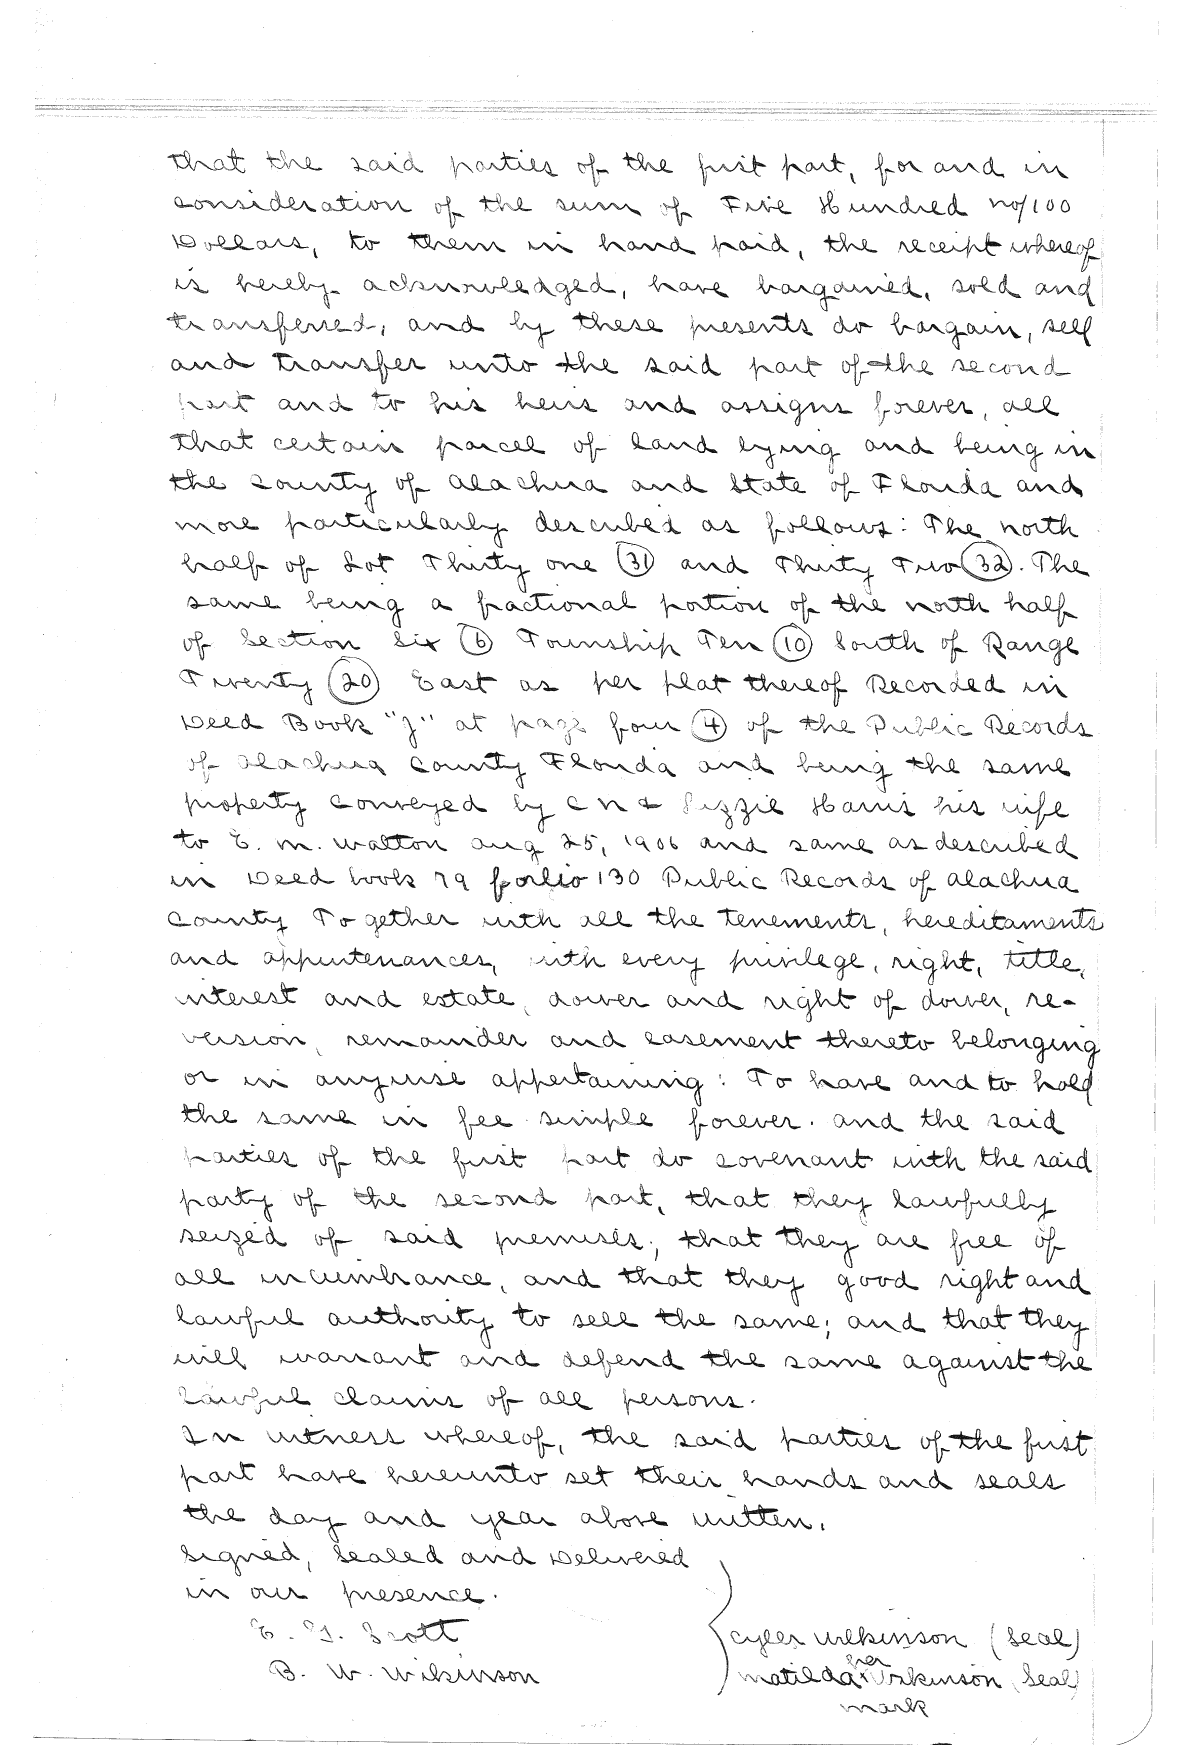 that the said parties of the first part, for and in
consideration of the sum of Five Hundred no/100
Dollars, to them in hand paid, the receipt whereof
is hereby acknowledged, have bargained, sold and
transferred, and by these presents do bargain, sell
and transfer unto the said part of the second
part and to his heirs and assigns forever, all
that certain parcel of land lying and being in
the County of Alachua and State of Florida and
more particularly described as follows: The north
half of Lot Thirty one (31) and Thirty Two (32). The
same being a fractional portion of the north half
of Section Six (6) Township Ten (10) South of Range
Twenty (20) East as per plat thereof Recorded in
Deed Book "J" at page four (4) of the Public Records
of Alachua County Florida and being the same
property conveyed by C N & Lizzie Harris his wife
to E. M. Walton Aug 25, 1906 and same as described
in Deed book 79 forlio 130 Public Records of Alachua
County Together with all the tenements, hereditaments
and appurtenances, with every privilege, right, title,
interest and estate, dower and right of dower, re-
version, remainder and easement thereto belonging
or in anywise appertaining: To have and to hold
the same in fee simple forever. And the said
parties of the first part do covenant with the said
party of the second part, that they lawfully
seized of said premises; that they are free of
all incumbrance, and that they good right and
lawful authority to sell the same; and that they
will warrant and defend the same against the
lawful claims of all persons.
In witness whereof, the said parties of the first
part have hereunto set their hands and seals
the day and year above written.
Signed, Sealed and Delivered
in our presence.
E. G. Scott
Cyler Wilkinson (Seal)
B. W. Wilkinson
her
Matilda x Wilkinson (Seal)
mark